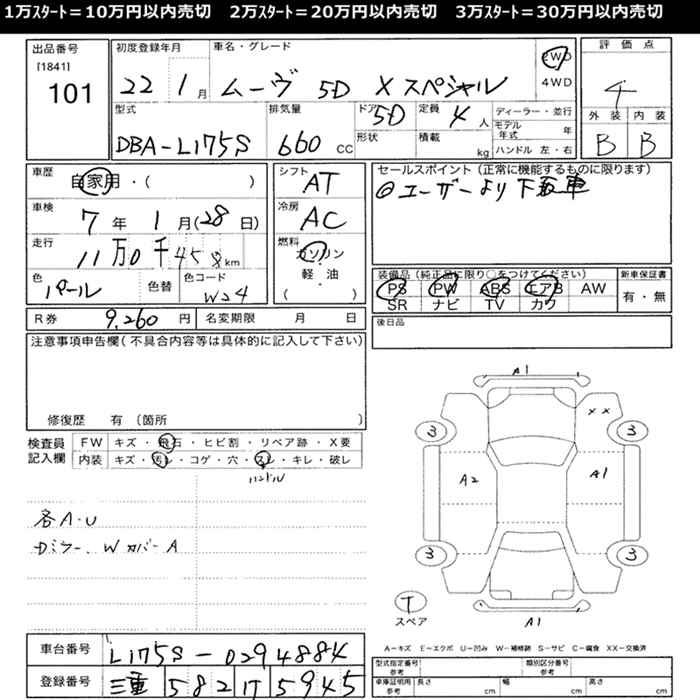 1万ｽﾀｰﾄ＝10万円以内売切　2万ｽﾀｰﾄ＝20万円以内売切　3万ｽﾀｰﾄ＝30万円以内売切
出品番号
[1841]
101
初度登録年月
22 1月
車名・グレード
ムーヴ 5D X スペシャル
2WD
4WD
評価点
4
外装 内装
B B
型式
DBA-L175S
排気量
660 CC
ドア
5D
形状
定員
4人
積載
kg
ディーラー・並行
モデル年式 年
ハンドル 左・右
車歴
自家用・( )
車検
7年 1月(28日)
走行
11万0千458km
色
パール
色替
色コード
W24
シフト
AT
冷房
AC
燃料
ガソリン
軽・油
( )
セールスポイント（正常に機能するものに限ります）
◎ユーザーより下取車
装備品（純正品に限り○をつけてください）
PS PW ABS エアB AW
SR ナビ TV カワ
新車保証書
有・無
R券 9,260円 名変期限 月 日
後日品
注意事項申告欄(不具合内容等は具体的に記入して下さい)
修復歴 有〔箇所 〕
検査員記入欄
FW キズ・飛石・ヒビ割・リペア跡・X要
内装 キズ・汚レ・コゲ・穴・スレ・キレ・破レ
ハンドル
各A・U
Dミラー、WカバーA
A1
XX
3 3
A2 A1
3 3
T
スペア
A1
A－キズ E－エクボ U－凹み W－補修跡 S－サビ C－腐食 XX－交換済
車台番号 L175S-0294884
登録番号 三重 582 17 5945
型式指定番号 参考
類別区分番号 参考
車庫証明用 参考 長さ cm 幅 cm 高さ cm